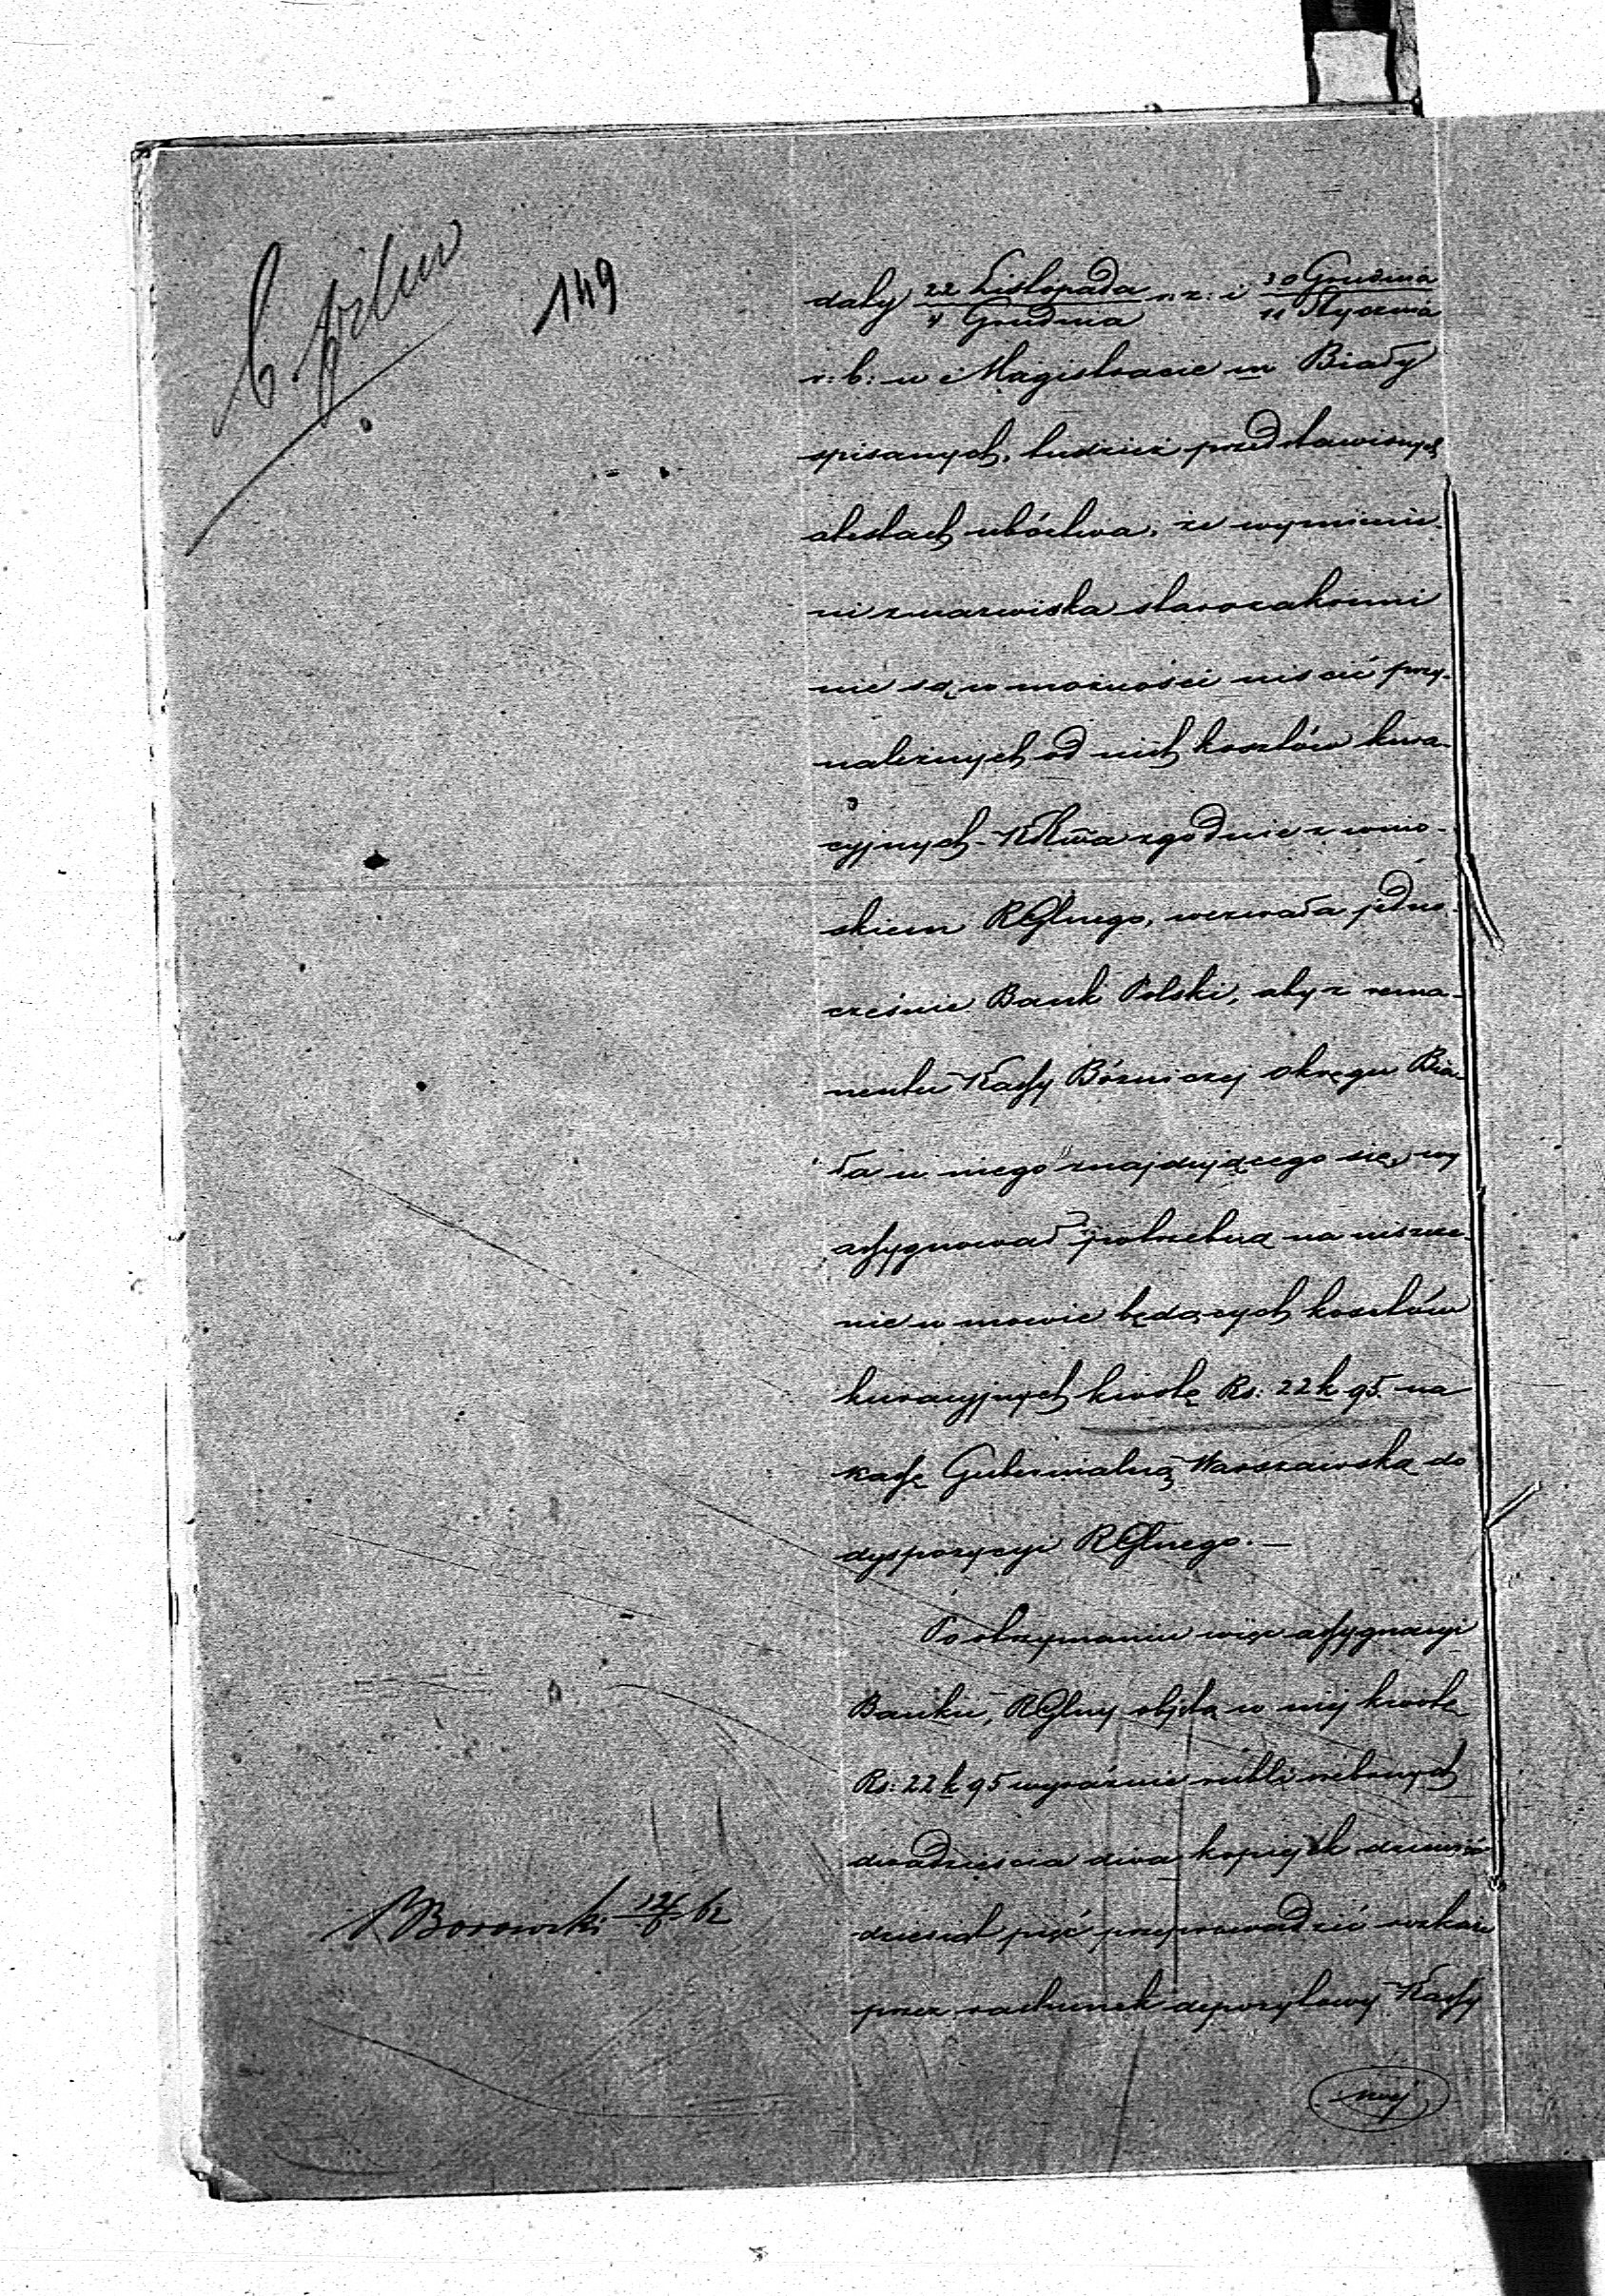 149
daty 22 Listopada / 4 Grudnia r. z: i 30 Grudnia / 11 Stycznia
r: b: w Magistracie m Biały
spisanych, tudzież przedstawionych
atestach ubóstwa, że wymienie
ni z nazwiska starozakonni
nie są w możności uiścić przy-
należnych od nich kosztów kura-
cyjnych - KRwa zgodnie z wnio-
skiem RGlnego, wezwała jedno-
cześnie Bank Polski, aby z rema-
nentu Kassy Bóżniczej okręgu Bia-
ła u niego znajdującego się, wy
assygnował potrzebną na uiszcze-
nie w mowie będących kosztów
kuracyjnych kwotę Rs: 22 k 95. na
kassę Gubernialną Warszawską do
dyspozycyi RGlnego. —
Po otrzymaniu więc assygnacyi
Banku, RGlny objętą w niej kwotę
Rs: 22 k 95 wyraźnie rubli srebrnych
dwadzieścia dwa kopiejek dziewięć
dziesiąt pięć przeprowadzić rozkaże
przez rachunek depozytowy Kassy
Borowski 62